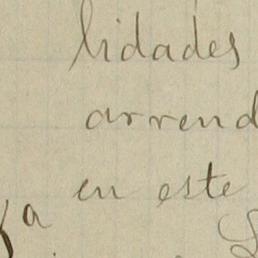 lidades
arrend
en este